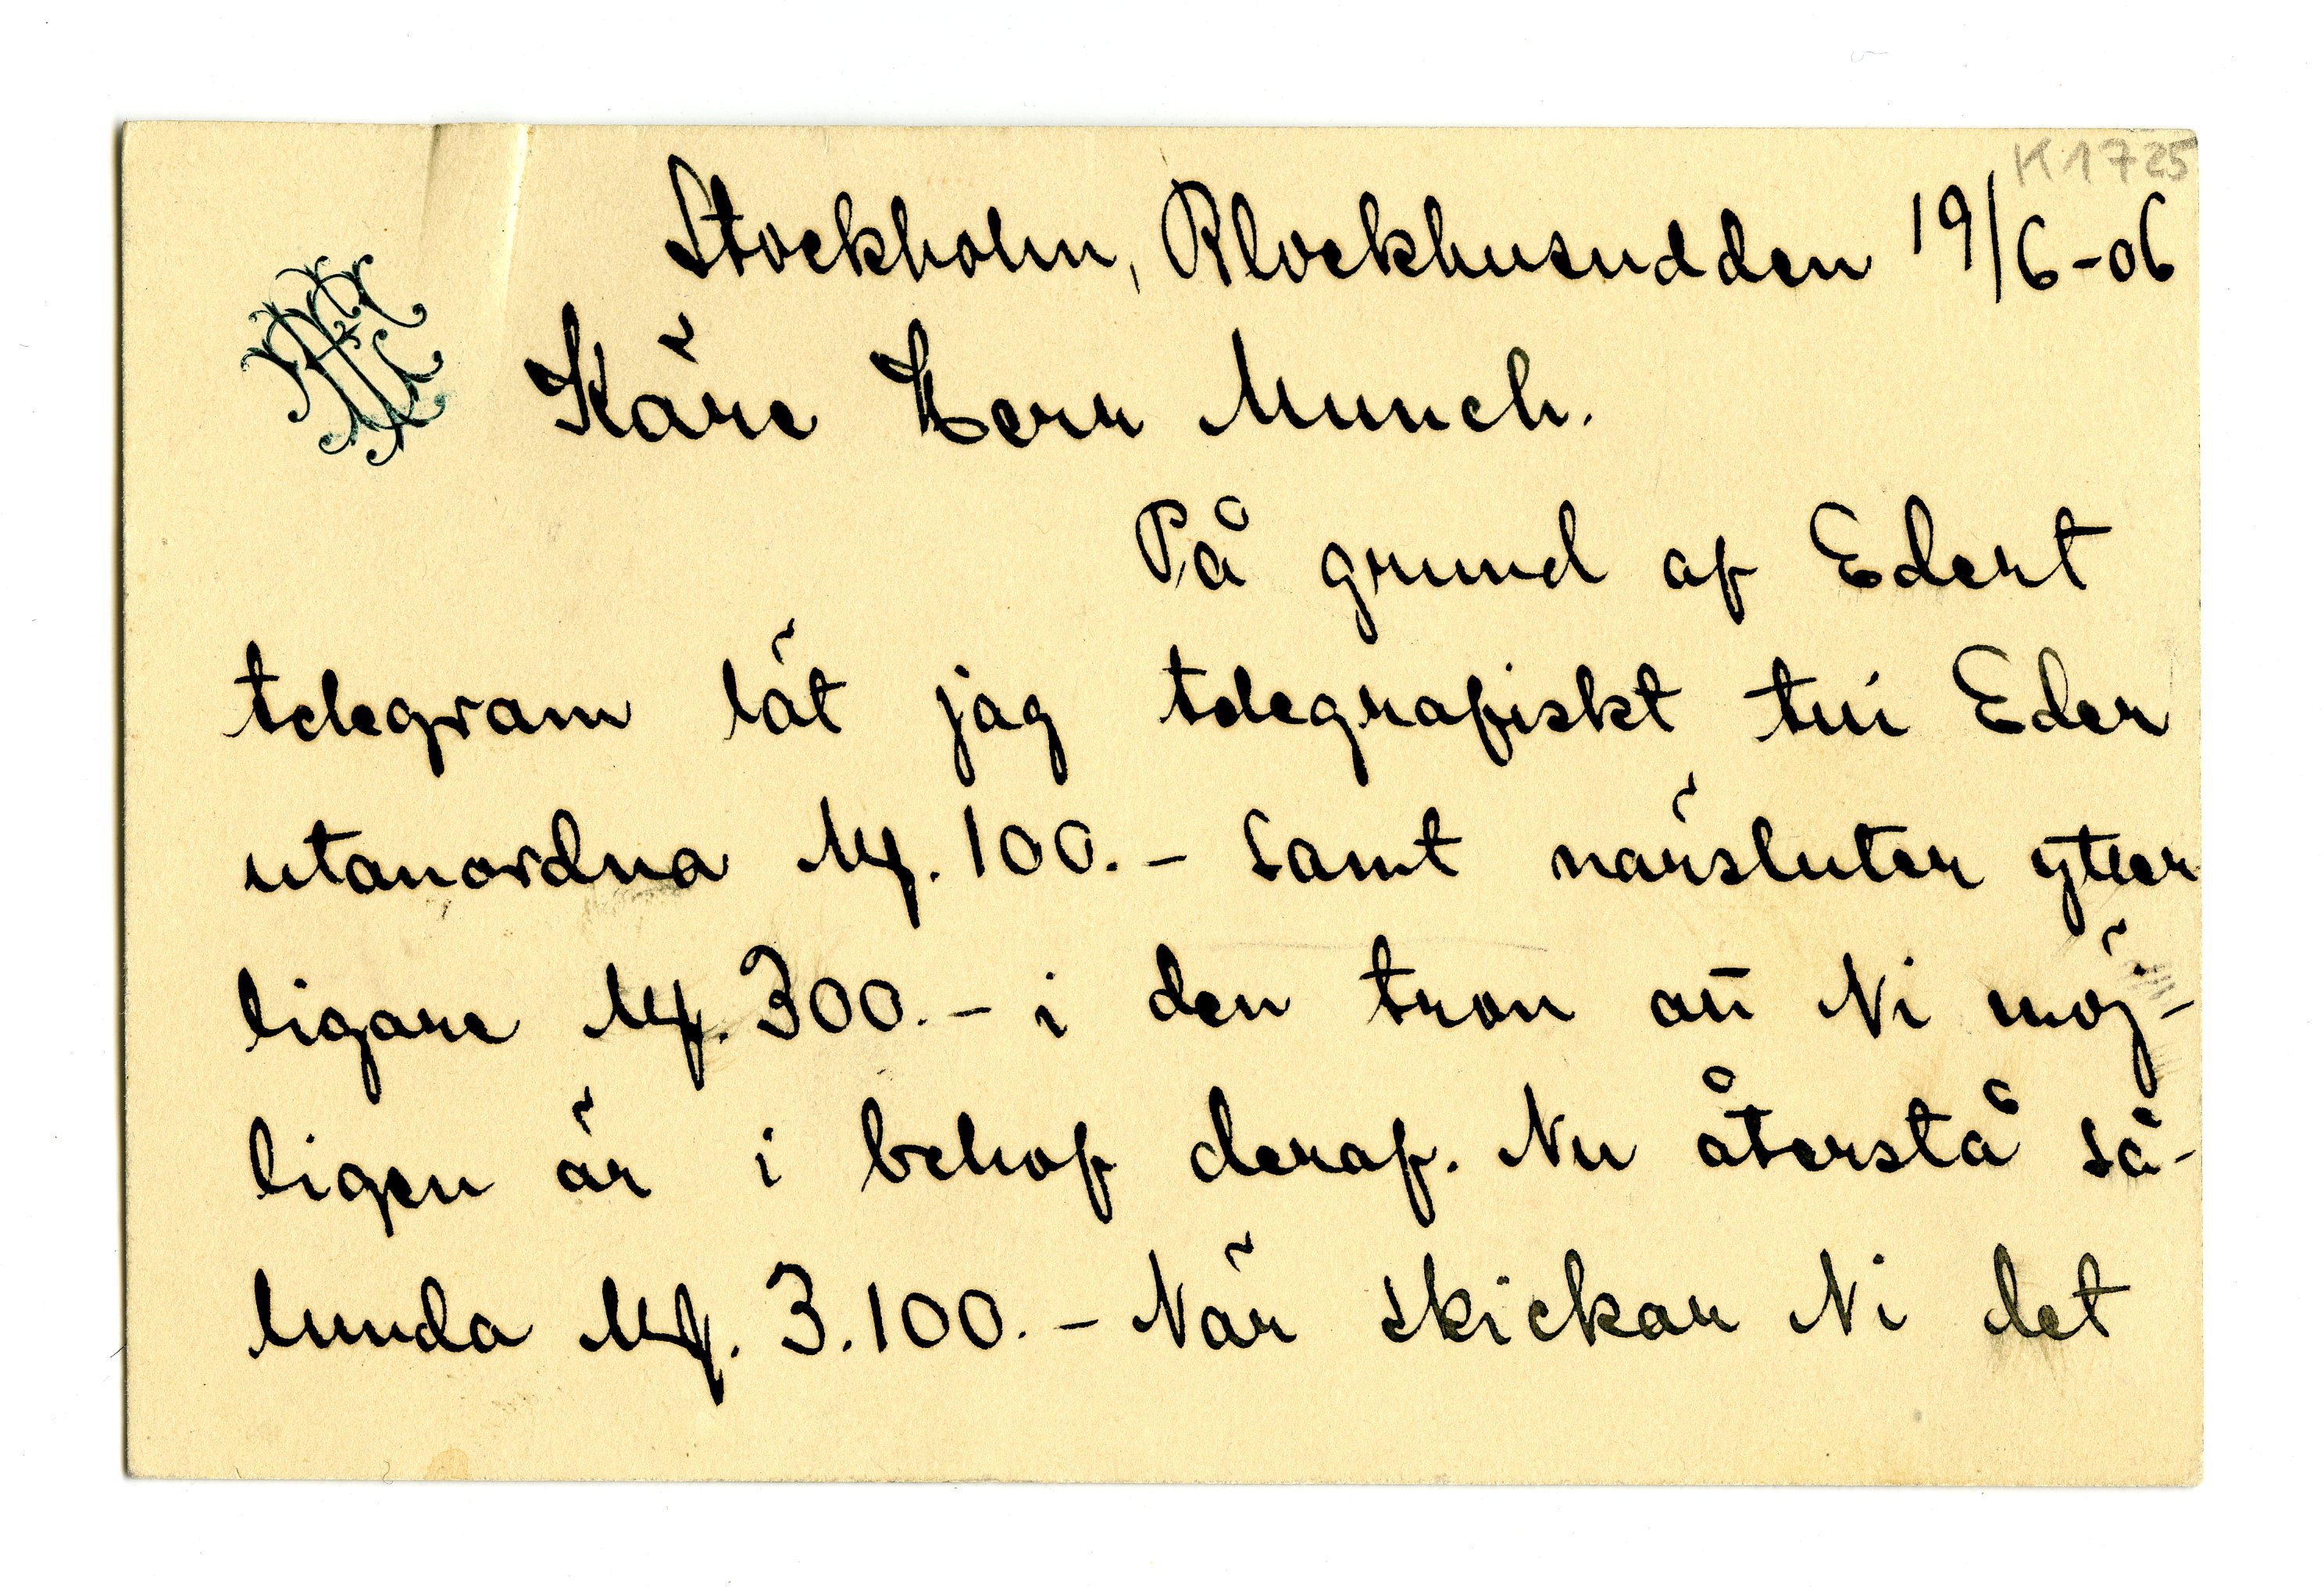 K 1725
Stockholm, Blockhusudden 19/6-06
Käre Herr Munch.
På grund af Edert
telegram lät jag telegrafiskt till Eder
utanordna Mk. 100.- samt närsluter ytter
ligare Mk. 300.- i den tron att Ni möj-
ligen är i behof deraf. Nu återstå så-
lunda Mk. 3.100.- När skickar Ni det